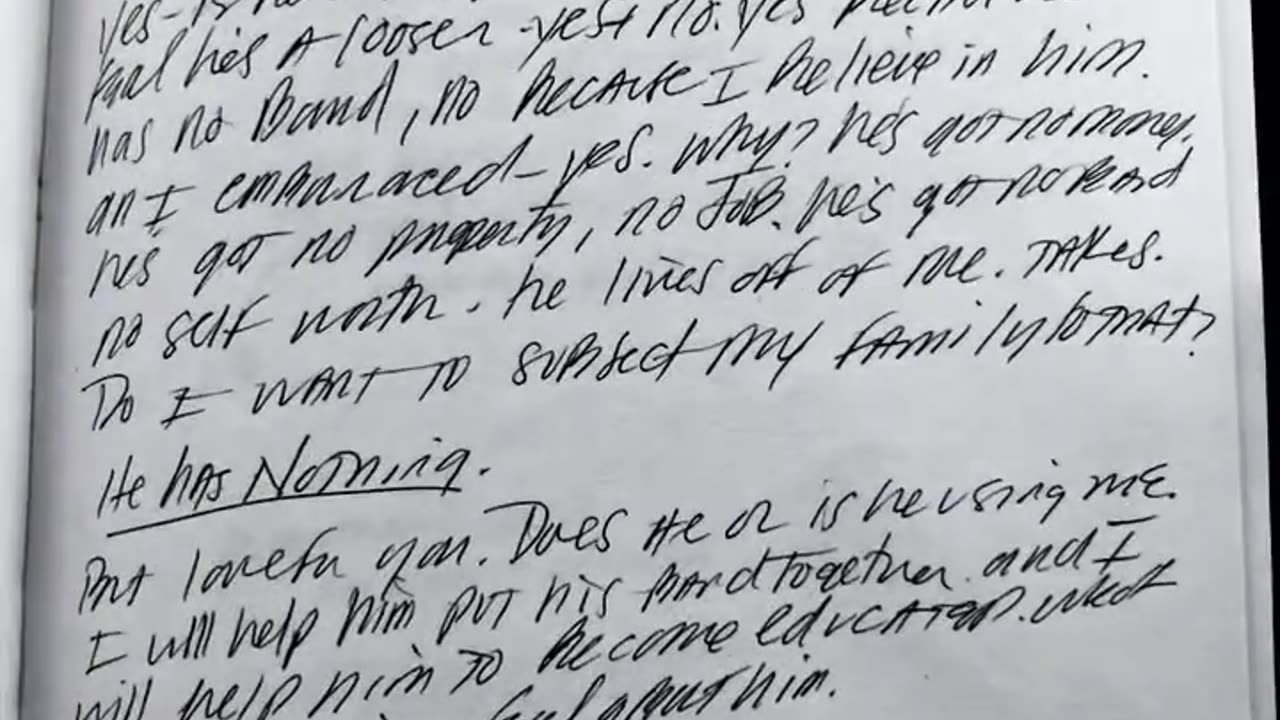 yes-
feel he's A looser - yes + no. yes
has no Band, no because I believe in him.
an I embarraced - yes. why? he's got no money,
he's got no property, no JOB. he's got no Band
no self worth. he lives off of me. TAKES.
Do I WANT TO subject my family to that?
He has Nothing.
But love for you. Does He or is he using me.
I will help him put his band together. and I
will help him to become educated.
about him.